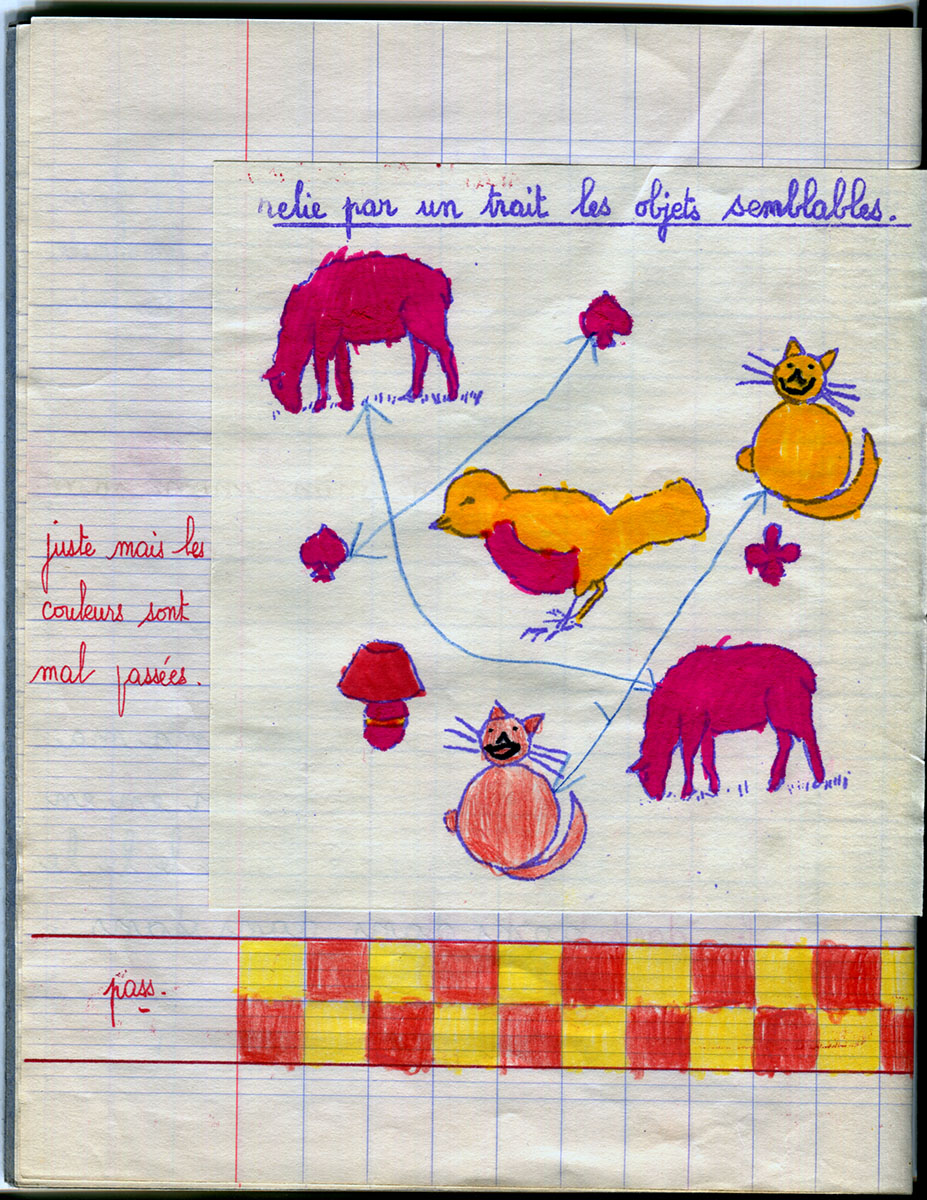 relie par un trait les objets semblables.
juste mais les
couleurs sont
mal passées.
pass.